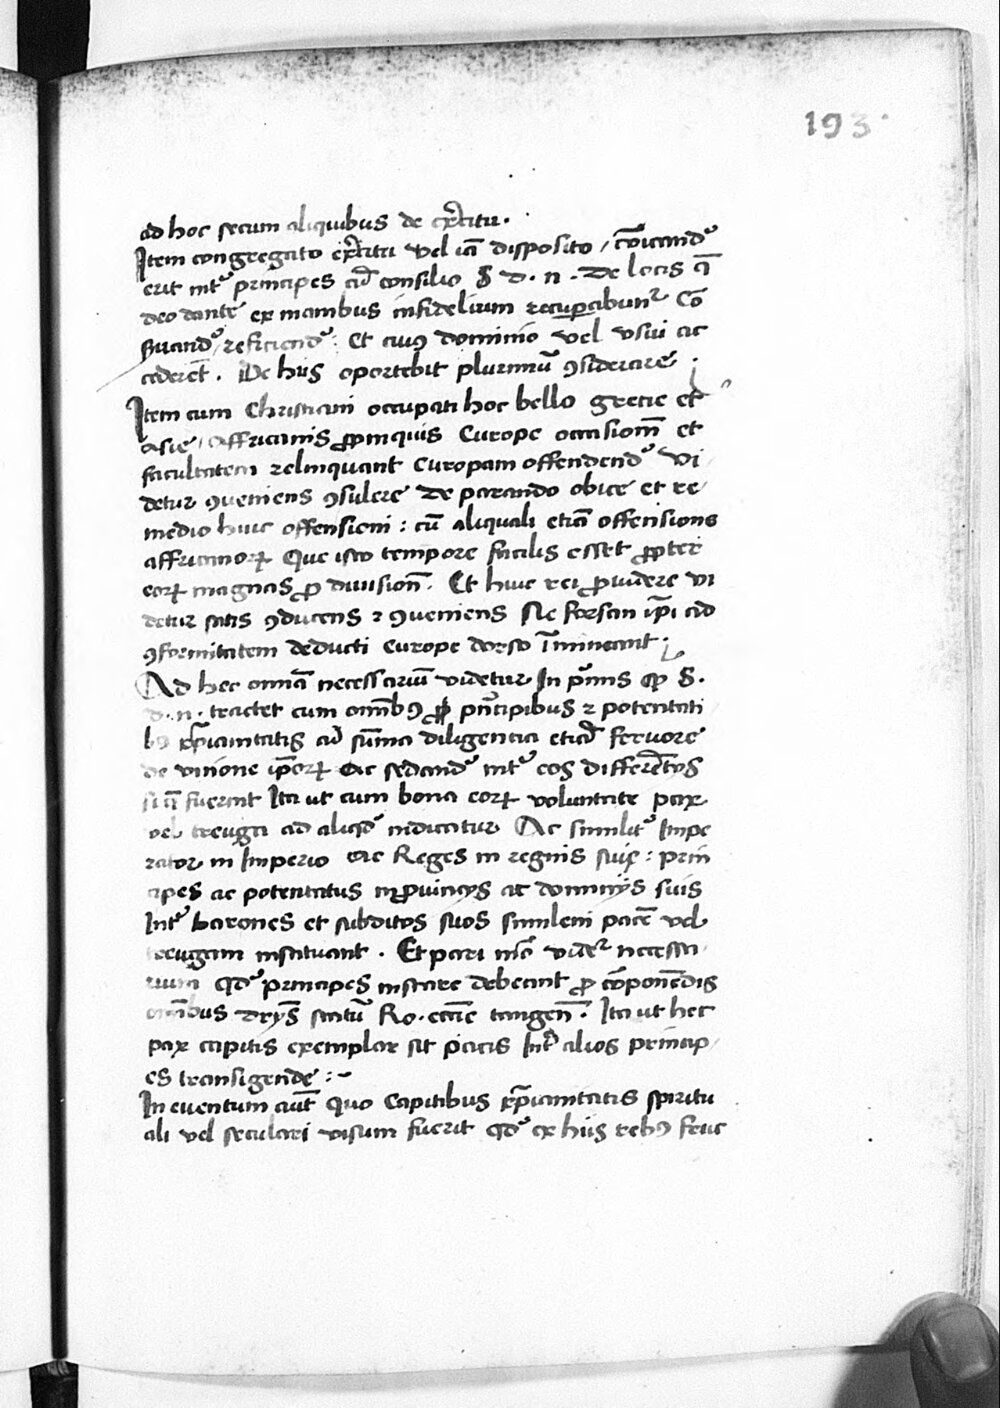 193
ad hoc secum aliquibus de exͤrcitu.
Item congregato exͤrcitu vel iā disposito / cōicandꝰ
erit intꝰ principes cū consilio S d. n. De locis q̄
deo dante ex manibus infidelium recuperabuntꝰ Cō
ẜuandꝰ, reficiendꝰ: Et cuiꝰ dominio vel vsui ac
cederēt. De hiis oportebit plurimū ꝯsiderare
Item cum Christiani occupati hoc bello grecie et
asie, affricanis ꝓpinquis Europe occasionē et
facultatem relinquant Europam offendendꝰ Vi
detur ꝯueniens ꝯsulere De parando obice et re
medio huic offensioni: cū aliquali etiā offensione
affricanoꝝ Que isto tempore facilis esset ꝓpter
eoꝝ magnas ꝓ diuisionē. Et huic rei ꝓuidere vi
detur satis ꝯducens ⁊ ꝯueniens Ne forsan ip̄i ad
ꝯformitatem deducti Europe dorso īmineant
Ad hec omnia necessariū videtur In pͥmis qꝫ S.
d. n. tractet cum omībꝰ pͥncipibus ⁊ potentati
bꝰ xp̄ianitatis cū sūma diligentia etiā feruore
de vnione ip̄oꝝ ac sedandꝰ intꝰ eos differētijs
si q̄ fuerint Ita ut cum bona eoꝝ voluntate pax
vel treuga ad aliqđ indicatur Ac similitꝰ Impe
rator in Imperio ac Reges in regnis suis: prin
cipes ac potentatus in ꝓuincijs ac dominijs suis
Intꝰ barones et subditos suos similem pacē vel
treugam instituant. Et pari mō videtꝰ necessa
rium qđ principes instare debeant ꝓ cōponēdis
omībus drijs statū Ro. eccīe tangēn. Ita ut hec
pax capitis exemplar sit pacis Intꝰ alios princip
es transigende:~
In euentum aūt quo Capitibus xp̄ianitatis spiritu
ali vel seculari visum fuerit qđ ex hiis rebꝰ